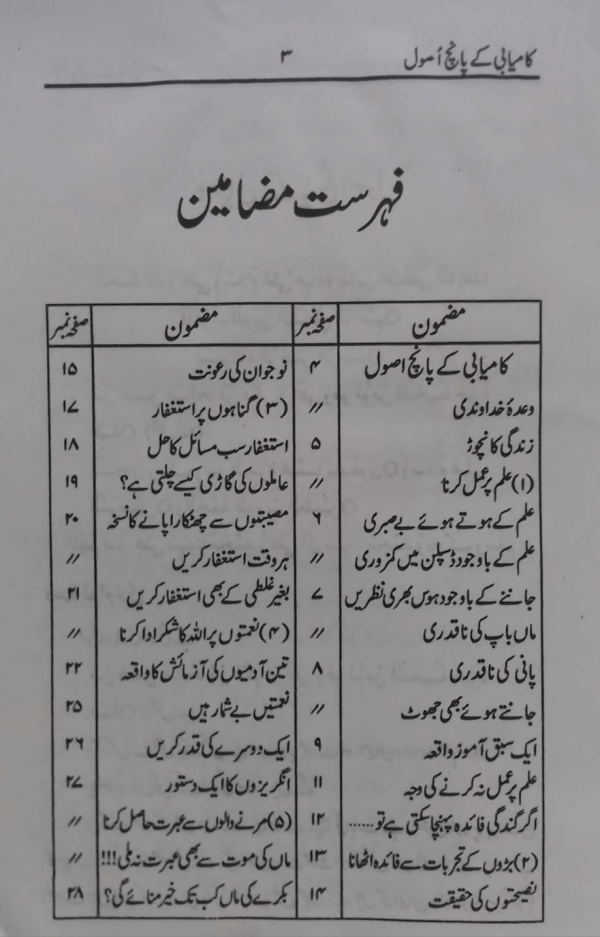 کامیابی کے پانچ اُصول ۳
فہرست مضامین
مضمون صفحہ نمبر مضمون صفحہ نمبر
کامیابی کے پانچ اصول ۴ نوجوان کی رعونت ۱۵
وعدۂ خداوندی // (۳) گناہوں پر استغفار ۱۷
زندگی کا نچوڑ ۵ استغفار سب مسائل کا حل ۱۸
(۱) علم پر عمل کرنا // عاملوں کی گاڑی کیسے چلتی ہے؟ ۱۹
علم کے ہوتے ہوئے بے صبری ۶ مصیبتوں سے چھٹکارا پانے کا نسخہ ۲۰
علم کے باوجود ڈسپلن میں کمزوری // ہر وقت استغفار کریں //
جاننے کے باوجود ہوس بھری نظریں ۷ بغیر غلطی کے بھی استغفار کریں ۲۱
ماں باپ کی ناقدری // (۴) نعمتوں پر اللہ کا شکر ادا کرنا //
پانی کی ناقدری ۸ تین آدمیوں کی آزمائش کا واقعہ ۲۲
جانتے ہوئے بھی جھوٹ // نعمتیں بے شمار ہیں ۲۵
ایک سبق آموز واقعہ ۹ ایک دوسرے کی قدر کریں ۲۶
علم پر عمل نہ کرنے کی وجہ ۱۱ انگریزوں کا ایک دستور ۲۷
اگر گندگی فائدہ پہنچا سکتی ہے تو...... ۱۲ (۵) مرنے والوں سے عبرت حاصل کرنا //
(۲) بڑوں کے تجربات سے فائدہ اٹھانا ۱۳ ماں کی موت سے بھی عبرت نہ ملی!!! //
نصیحتوں کی حقیقت ۱۴ بکرے کی ماں کب تک خیر منائے گی؟ ۲۸